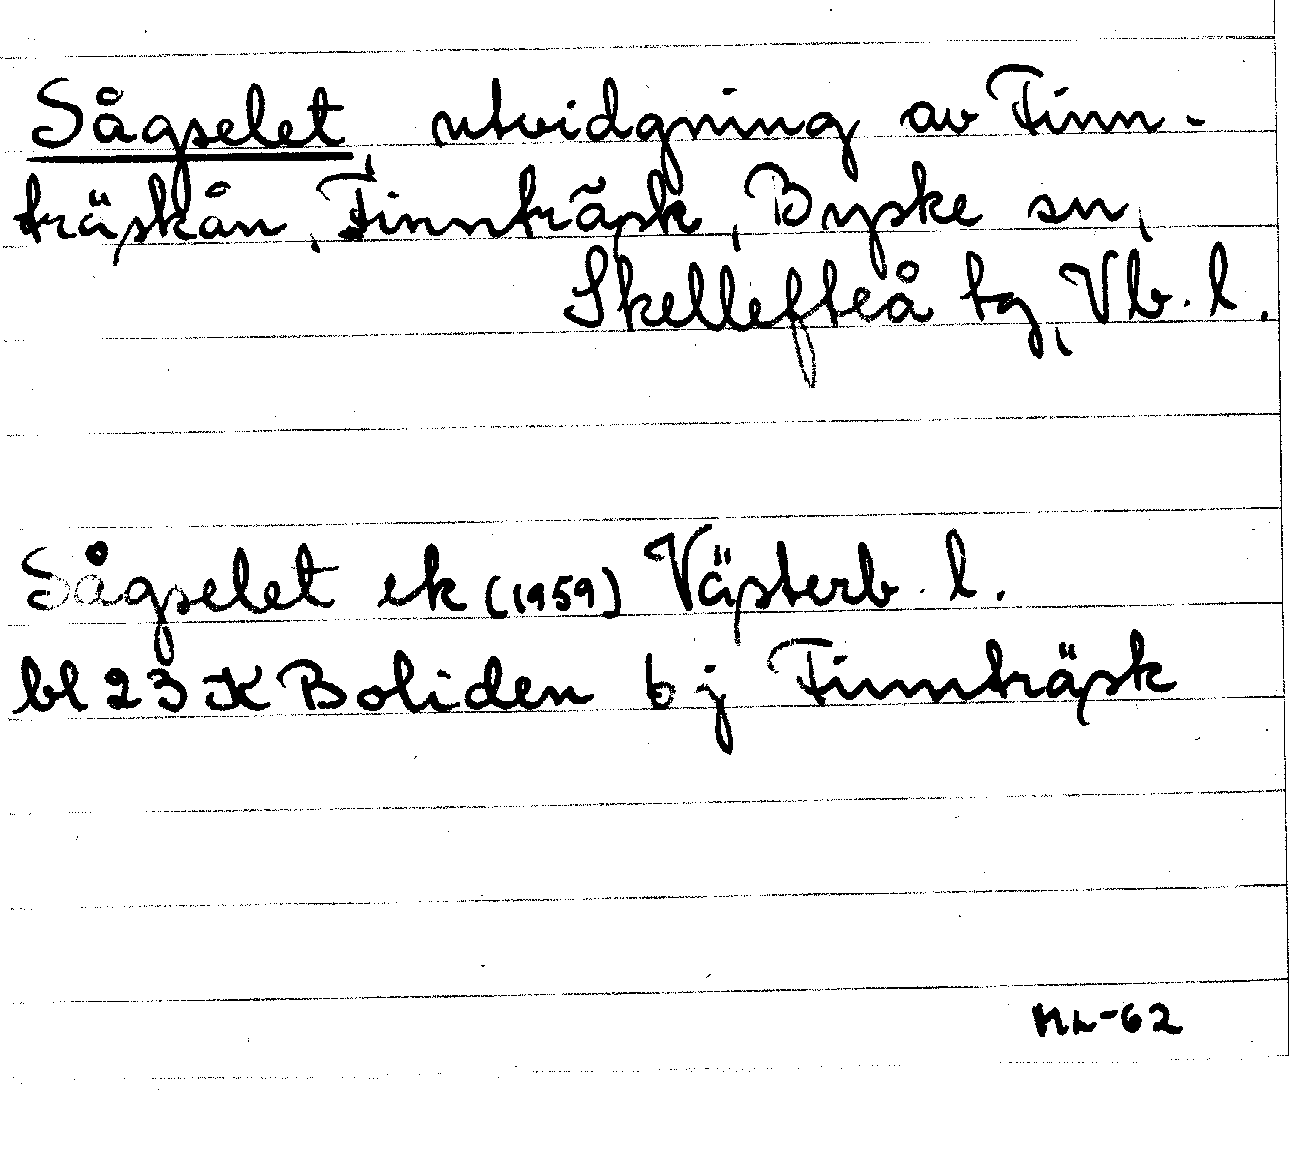 Sågselet, utvidgning av Finn-
träskån, Finnträsk, Byske sn,
Skellefteå tg, Vb. l.
Sågselet ek (1959) Västerb. l.
bl 23 K Boliden bj Finnträsk
HL-62